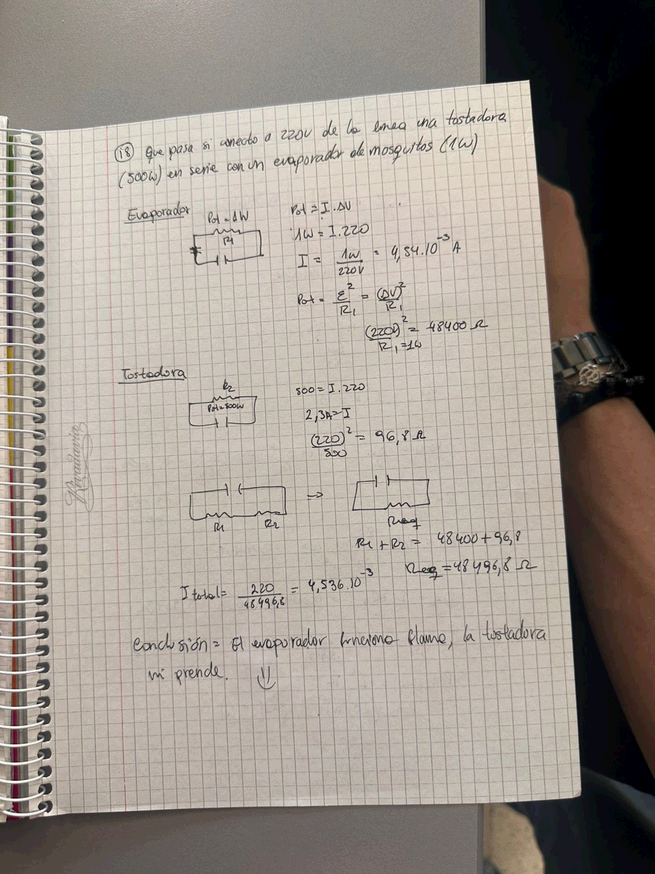 18) Que pasa si conecto a 220V de la linea una tostadora
(500W) en serie con un evaporador de mosquitos (1W)
Evaporador
Pot = 1W
R1
Pot = I.ΔV
1W = I.220
I = 1W/220V = 4,54.10^-3 A
Pot = ε²/R1 = (ΔV)²/R1
(220V)²/R1=1W = 48400 Ω
Tostadora
R2
Pot=500W
500 = I.220
2,3A=I
(220)²/500 = 96,8 Ω
R1 R2
=>
Req
R1 + R2 = 48400+96,8
Req = 48496,8 Ω
I total = 220/48496,8 = 4,536.10^-3
Conclusión = El evaporador funciona flama, la tostadora
ni prende.
Rivadavia